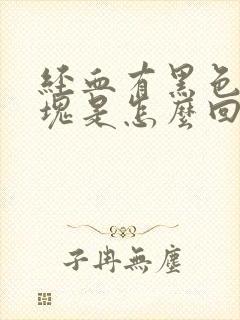 經血有黑色
塊是怎麼回
子冉無塵